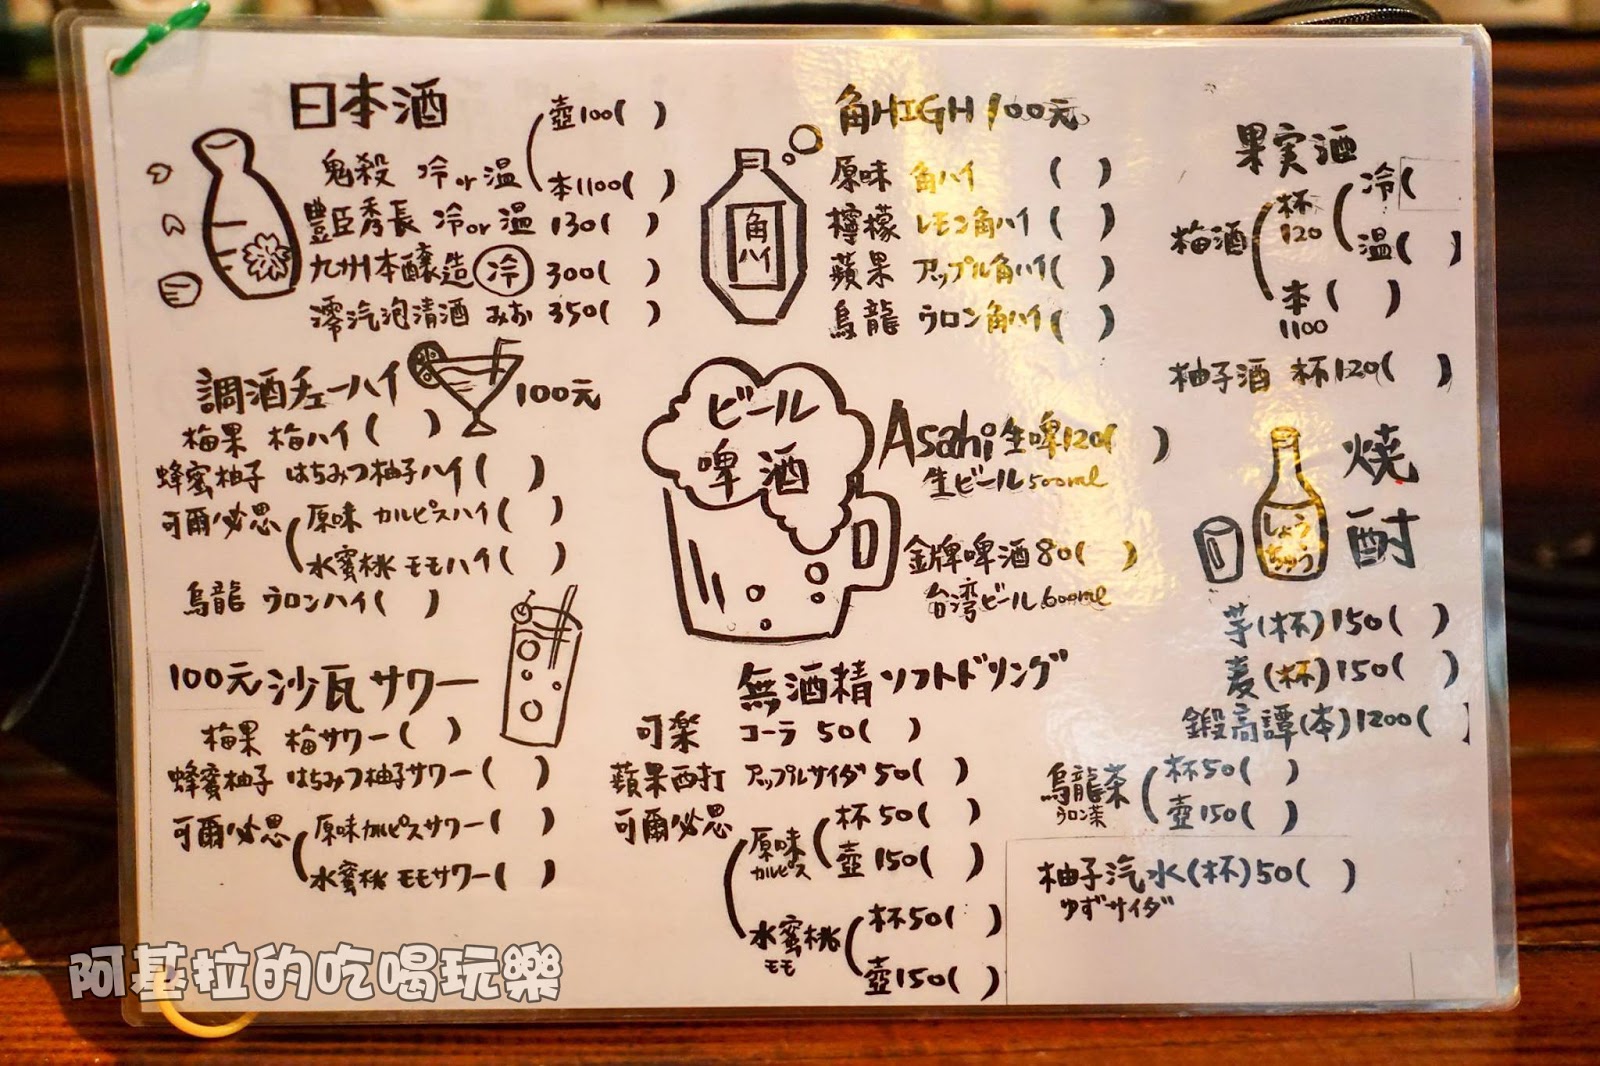 日本酒
鬼殺 冷or温 壺100( )
本1100( )
豐臣秀長 冷or温 130( )
九州本醸造 冷 300( )
澪汽泡清酒 みお 350( )
角HIGH 100元
角ハイ
原味 角ハイ ( )
檸檬 レモン角ハイ ( )
蘋果 アップル角ハイ( )
烏龍 ウロン角ハイ( )
果実酒
梅酒 杯120 冷(
温( )
本1100 ( )
柚子酒 杯120( )
調酒チューハイ 100元
梅果 梅ハイ ( )
蜂蜜柚子 はちみつ柚子ハイ ( )
可爾必思 原味 カルピスハイ ( )
水蜜桃 モモハイ ( )
烏龍 ウロンハイ( )
ビール
啤酒
Asahi生啤120( )
生ビール500ml
金牌啤酒80( )
台湾ビール600ml
焼酎
しょうちゅう
芋(杯)150( )
麦(杯)150( )
鍛高譚(本)1200( )
100元沙瓦サワー
梅果 梅サワー( )
蜂蜜柚子 はちみつ柚子サワー( )
可爾必思 原味カルピスサワー( )
水蜜桃 モモサワー( )
無酒精ソフトドリング
可楽 コーラ 50( )
蘋果西打 アップルサイダ 50( )
可爾必思 原味 カルピス 杯50( )
壺150( )
水蜜桃 モモ 杯50( )
壺150( )
烏龍茶 ウロン茶 杯50( )
壺150( )
柚子汽水(杯)50( )
ゆずサイダ
阿基拉的吃喝玩樂